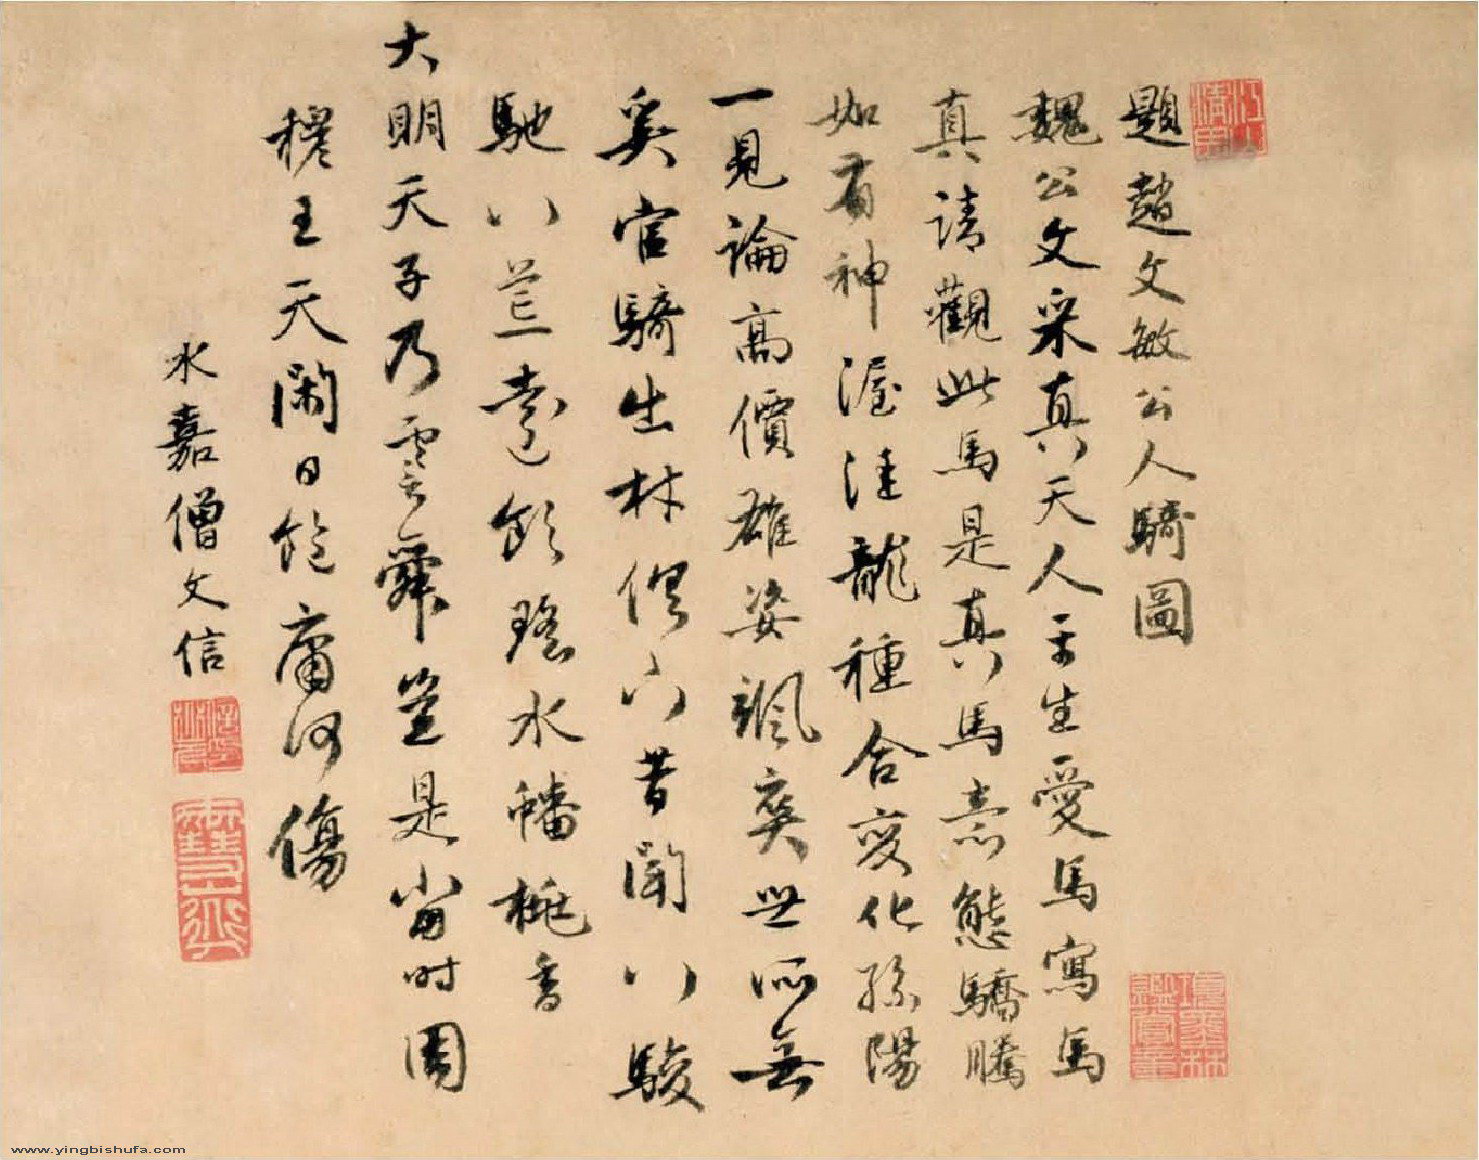 題趙文敏公人騎圖
魏公文采真天人平生愛馬寫馬
真請觀此馬是真馬意態驕騰
如有神渥洼龍種合變化孫陽
一見論高價雄姿颯爽世所無
奚官騎出林傒下昔聞八駿
馳八荒遠飲瑤水蟠桃香
大明天子乃堯舜豈是當時周
穆王天閑日飽庸何傷
永嘉僧文信
www.yingbishufa.com